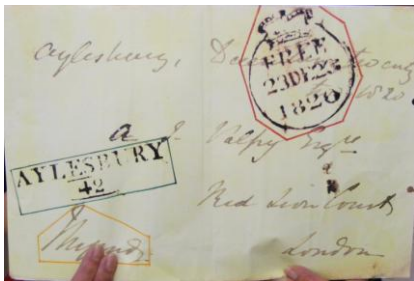 Aylesbury, December twenty
two 1820
FREE
23 DE 23
1820
A J Valpy Esqre
AYLESBURY
42
Red Lion Court
London